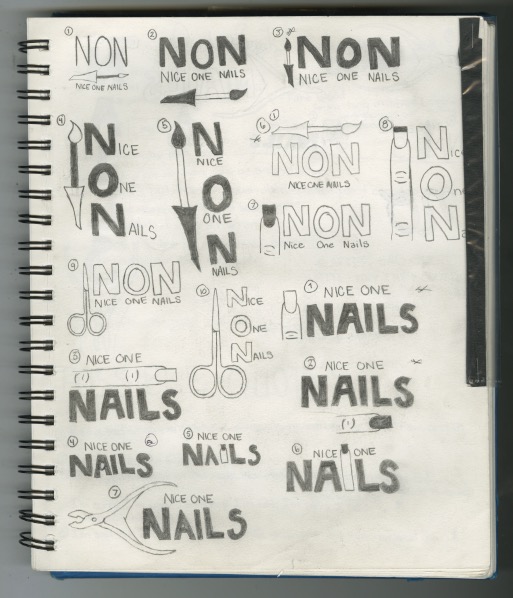 1 NON
NICE ONE NAILS
2 NON
NICE ONE NAILS
3 NON
NICE ONE NAILS
4 NICE
ONE
NAILS
5 N
NICE
O
ONE
N
NAILS
6 1
NON
NICE ONE NAILS
7 NON
Nice One Nails
8 Nic
On
Na
9 NON
NICE ONE NAILS
10 NICE
ONE
NAILS
1 NICE ONE
NAILS
3 NICE ONE
NAILS
2 NICE ONE
NAILS
4 NICE ONE
NAILS
5 NICE ONE
NAILS
6 NICE ONE
NAILS
7 NICE ONE
NAILS